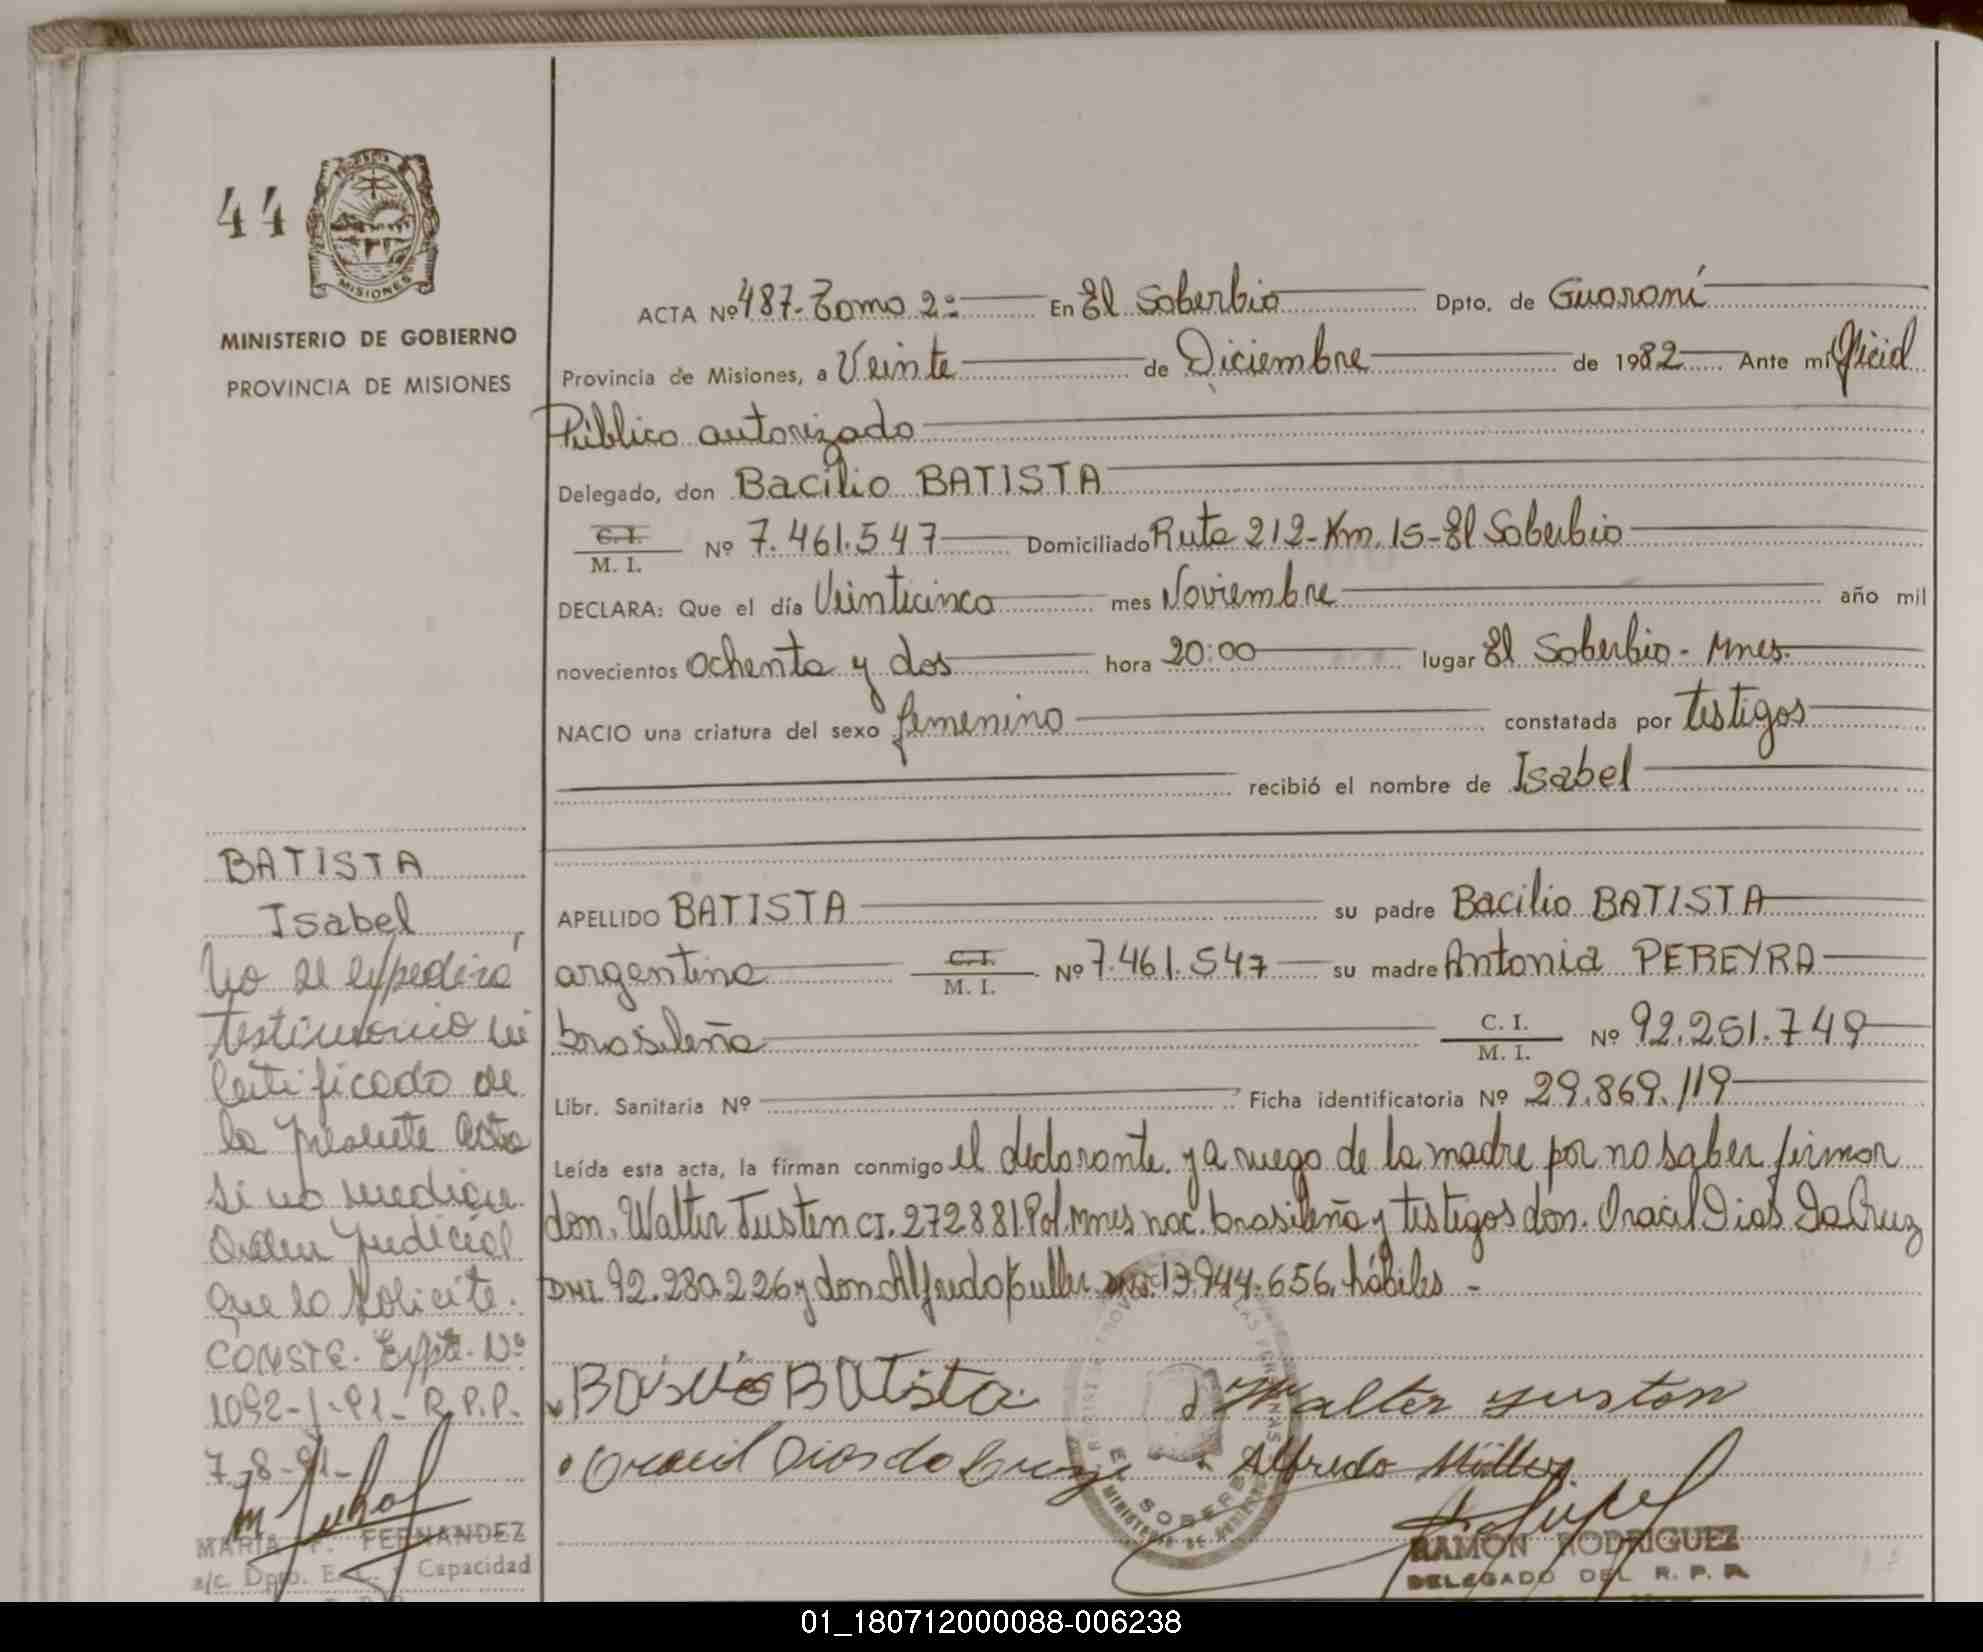 44
MISIONES
MINISTERIO DE GOBIERNO
PROVINCIA DE MISIONES
ACTA Nº 487-Tomo 2º En El Soberbio Dpto. de Guaraní
Provincia de Misiones, a Veinte de Diciembre de 1982 Ante mí Oficial
Público autorizado
Delegado, don Bacilio BATISTA
C.I. / M. I. Nº 7.461.547 Domiciliado Ruta 212-Km. 15-El Soberbio
DECLARA: Que el día Veinticinco mes Noviembre año mil
novecientos ochenta y dos hora 20:00 lugar El Soberbio - Mnes.
NACIO una criatura del sexo femenino constatada por testigos
recibió el nombre de Isabel
APELLIDO BATISTA su padre Bacilio BATISTA
argentina C.I. / M. I. Nº 7.461.547 su madre Antonia PEREYRA
brasileña C. I. / M. I. Nº 92.251.749
Libr. Sanitaria Nº Ficha identificatoria Nº 29.869.119
Leída esta acta, la firman conmigo el declarante y a ruego de la madre por no saber firmar
don. Walter Justen CI. 272881 Pol. Mnes nac. brasileña y testigos don. Oracil Dias Da Cruz
DNI. 92.280.226 y don Alfredo 13.944.656, hábiles -
BATista Walter
Oracil Dias da Cruz Alfredo Müller
EL SOBERBIO
RAMON RODRIGUEZ
DELEGADO DEL R. P. P.
BATISTA
Isabel
No se expedirá
testimonio ni
certificado de
la presente acta
si no medique
Orden Judicial
que lo solicite.
CONSTE. Expte. Nº
1092-J-91- R.P.P.
7-8-91-
MARIA F. FERNANDEZ
a/c. Dpto. E. C. y Capacidad
01_180712000088-006238